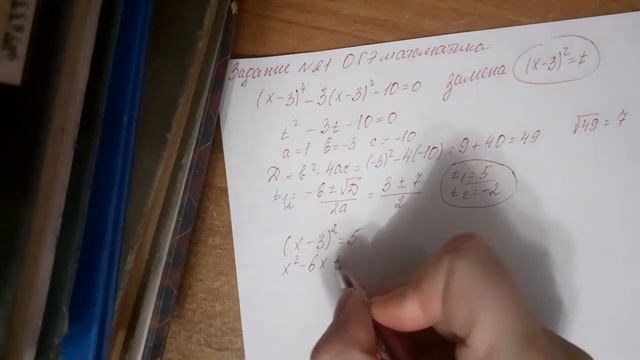 Задание №21 ОГЭ математика
(x-3)⁴ - 3(x-3)² - 10 = 0 замена (x-3)² = t
t² - 3t - 10 = 0
a=1 b=-3 c=-10
D = b² - 4ac = (-3)² - 4(-10) = 9 + 40 = 49 √49 = 7
t₁,₂ = (-b ± √D)/2a = (3 ± 7)/2 t₁ = 5
t₂ = -2
(x-3)² = 5
x² - 6x